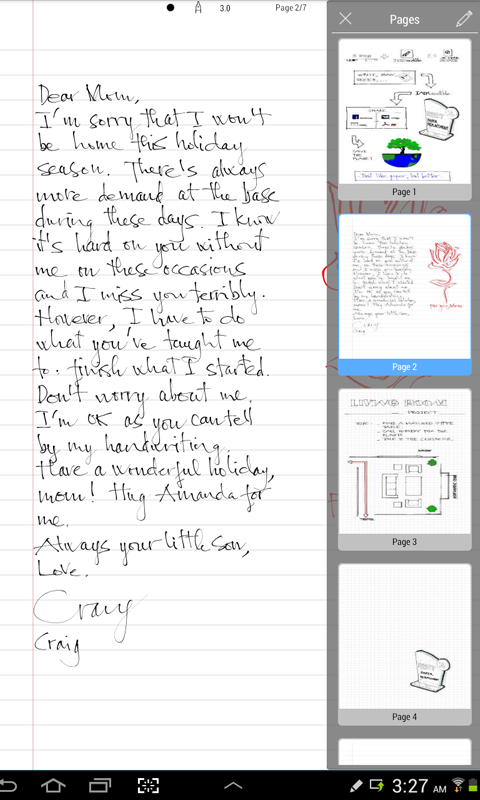 3.0
Page 2/7
Dear Mom,
I'm sorry that I won't
be home this holiday
season. There's always
more demand at the base
during these days. I know
it's hard on you without
me on these occasions
and I miss you terribly.
However, I have to do
what you've taught me
to: finish what I started.
Don't worry about me.
I'm OK as you can tell
by my handwriting.
Have a wonderful holiday,
mom! Hug Amanda for
me.
Always your little son,
Love.
Craig
Craig
Pages
SAVE
THE
PLANET
Just like paper, but better.
Page 1
Page 2
LIVING ROOM
PROJECT
Page 3
Page 4
3:27 AM